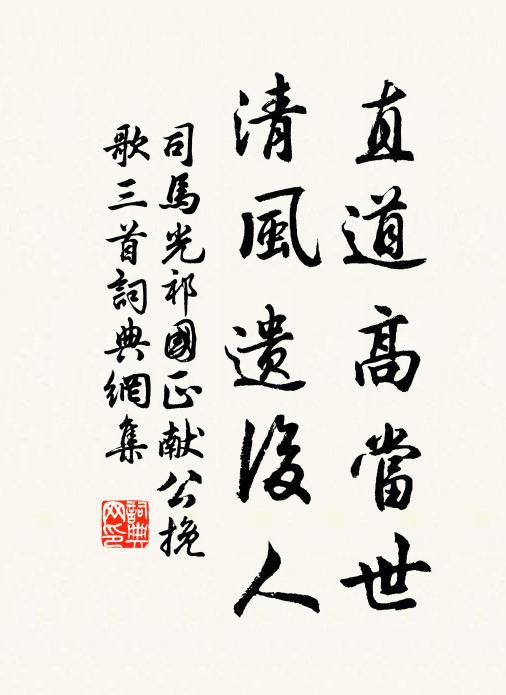 直道高當世
清風遺後人
司馬光祁國正献公挽
歌三首詞典網集
詞典
网印